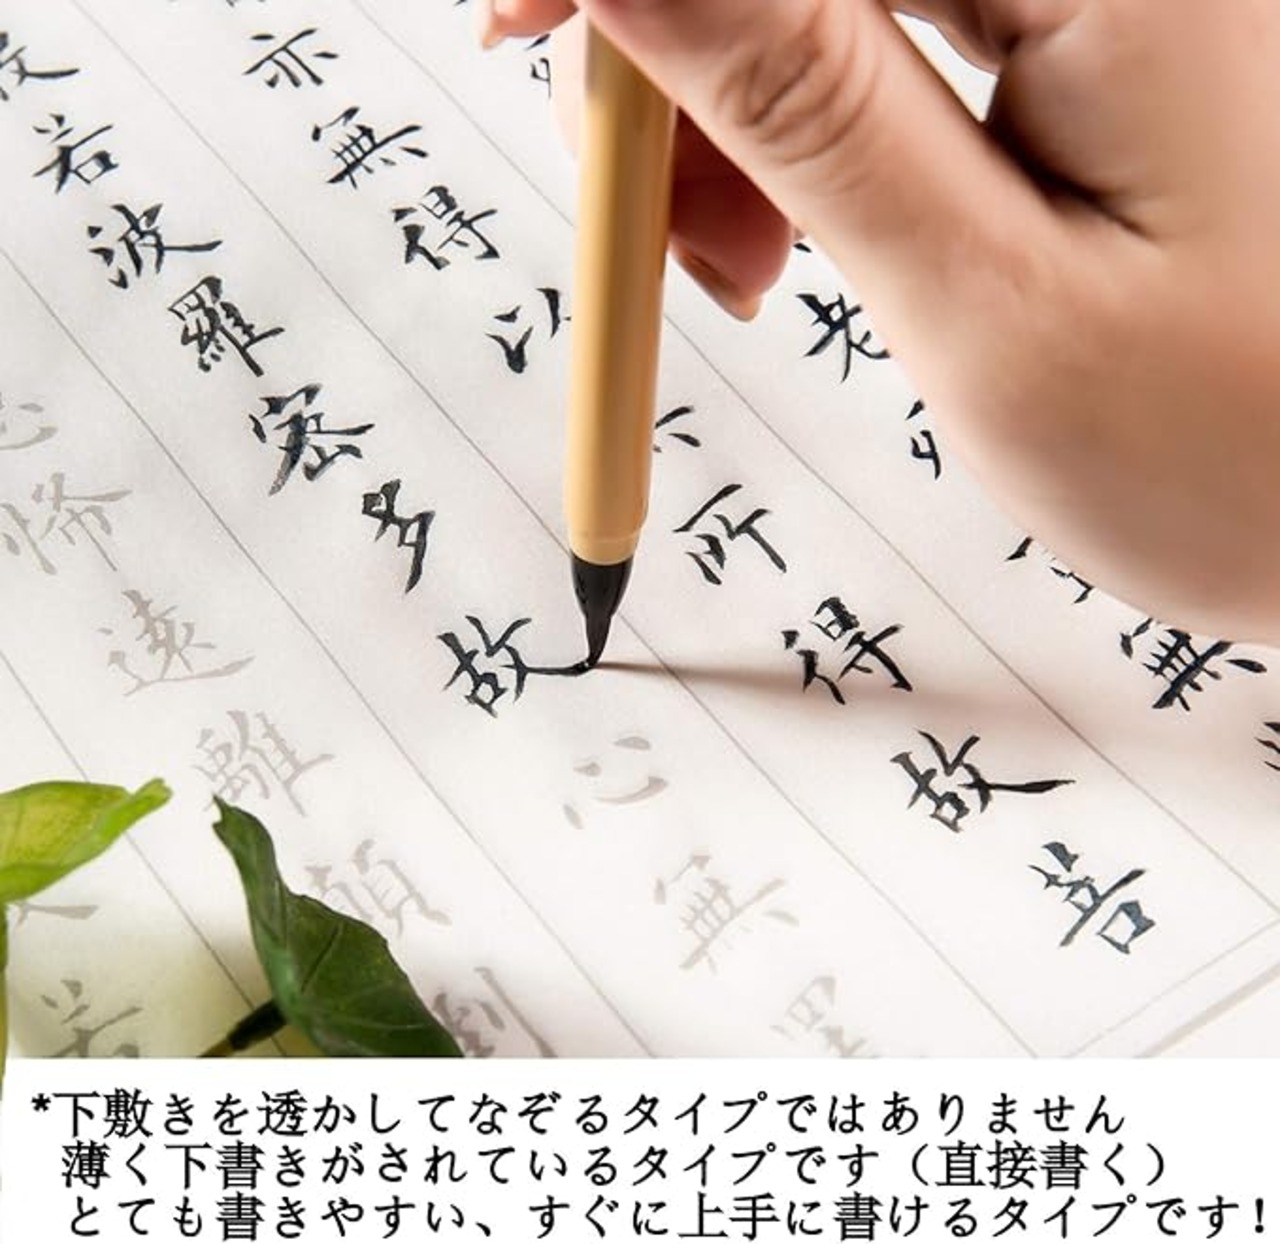 老
無
亦無得以所得故菩
若波羅蜜多故心無罣
怖遠離顛倒
若
*下敷きを透かしてなぞるタイプではありません
薄く下書きがされているタイプです（直接書く）
とても書きやすい、すぐに上手に書けるタイプです！